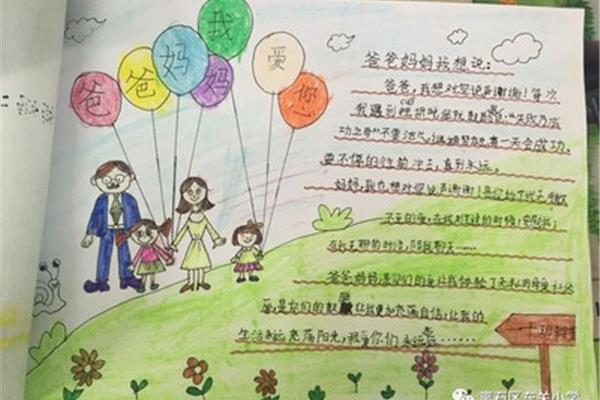 爸爸妈妈我爱您
爸爸妈妈我想说：
爸爸，我想对您说声谢谢！每次
我遇到挫折时您就鼓励我："失败乃成
功之母"不要泄气，继续努力总有一天会成功。
要不停的往前冲去，直到永远。
妈妈，我也想对您说声谢谢！是您给了我无微
不至的爱，在我难过的时候，安慰我；
在我无聊的时候，陪我聊天……
爸爸妈妈是你们的爱让我体验了无私的
是你们的 让我更加充满自信，让我的
生活永远充满阳光，我爱你们永远……